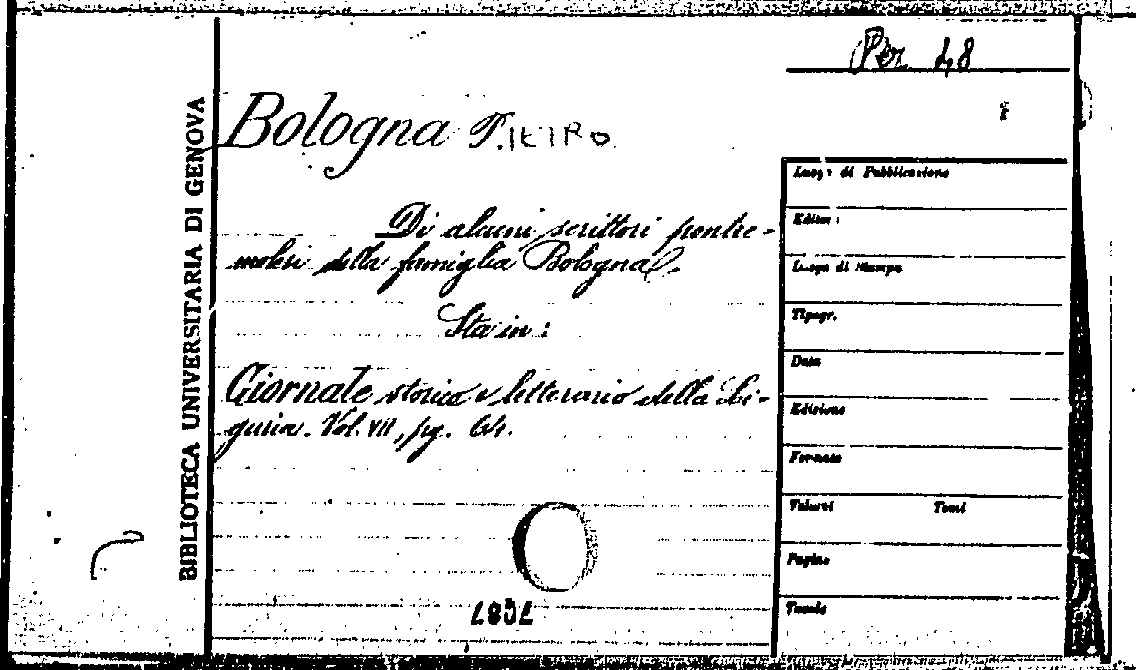 Per 48
BIBLIOTECA UNIVERSITARIA DI GENOVA
Bologna PIEIRO
Di alcuni scrittori pontre-
molesi della famiglia Bologna.
Sta in:
Giornale storico e letterario della Li-
guria. Vol. VII, pg. 64.
Luogo di Pubblicazione
Editore
Luogo di Stampa
Tipogr.
Data
Edizione
Formato
Volumi Tomi
Pagine
Tavole